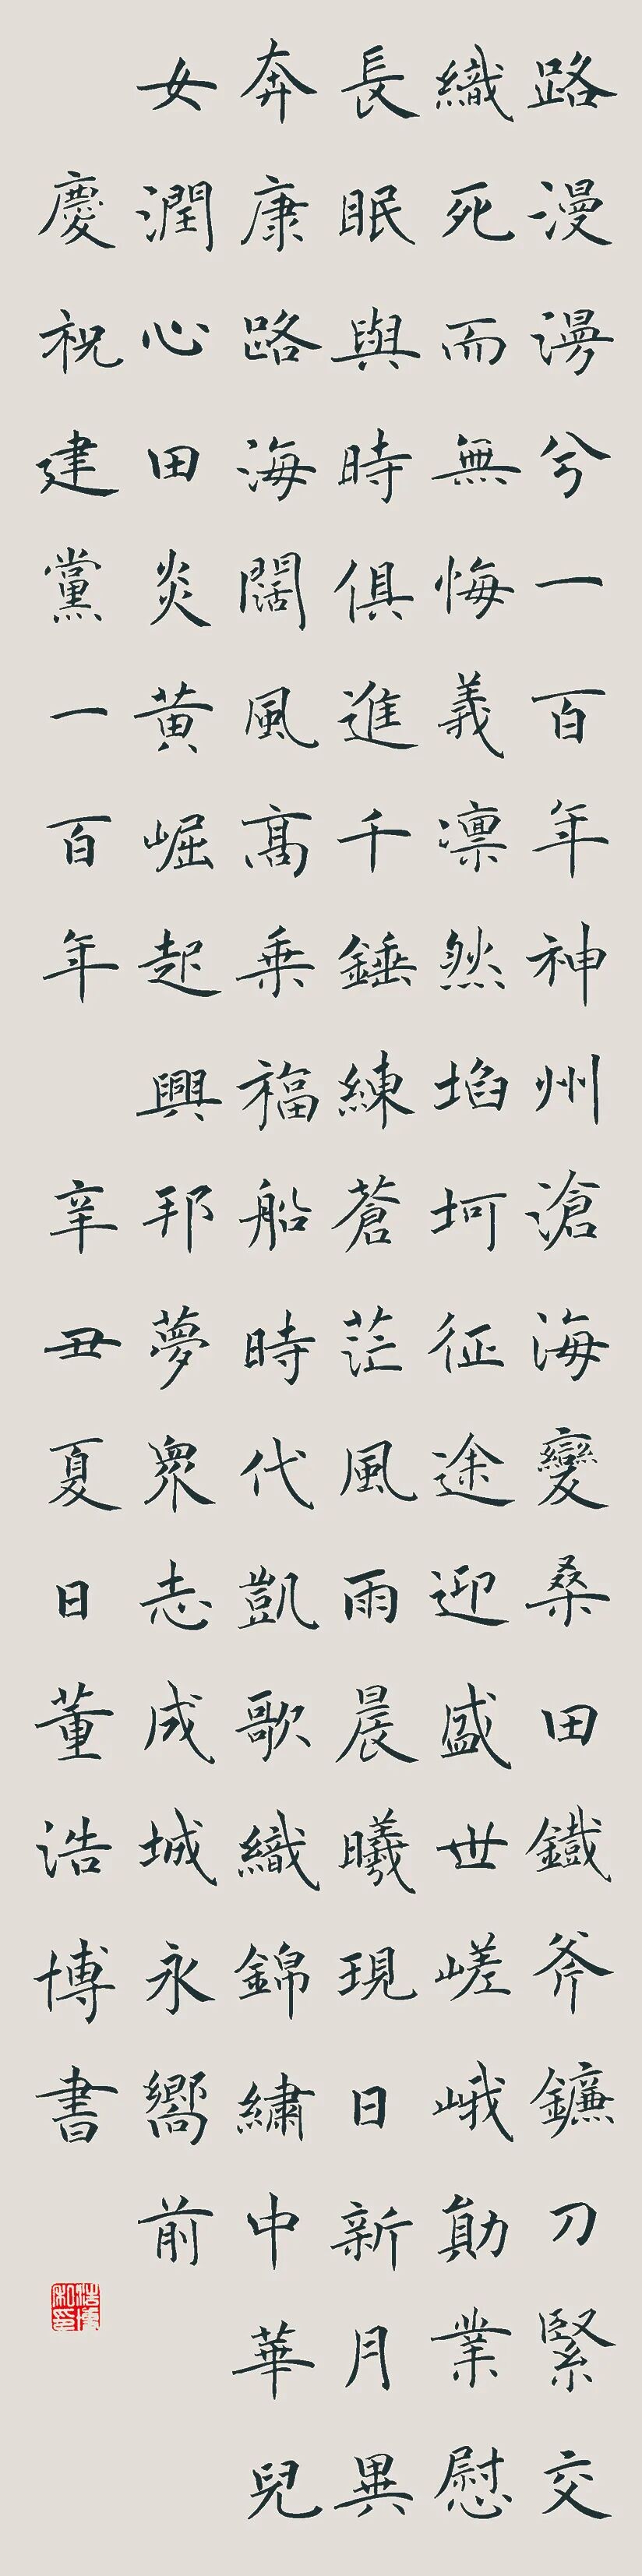 路漫漫兮一百年神州滄海變桑田鐵斧鐮刀緊交
織死而無悔義凛然埳坷征途迎盛世嵯峨勛業慰
長眠與時俱進千錘練蒼茫風雨晨曦現日新月異
奔康路海闊風高乘福船時代凱歌織錦繡中華兒
女潤心田炎黃崛起興邦夢衆志成城永嚮前
慶祝建黨一百年 辛丑夏日董浩博書